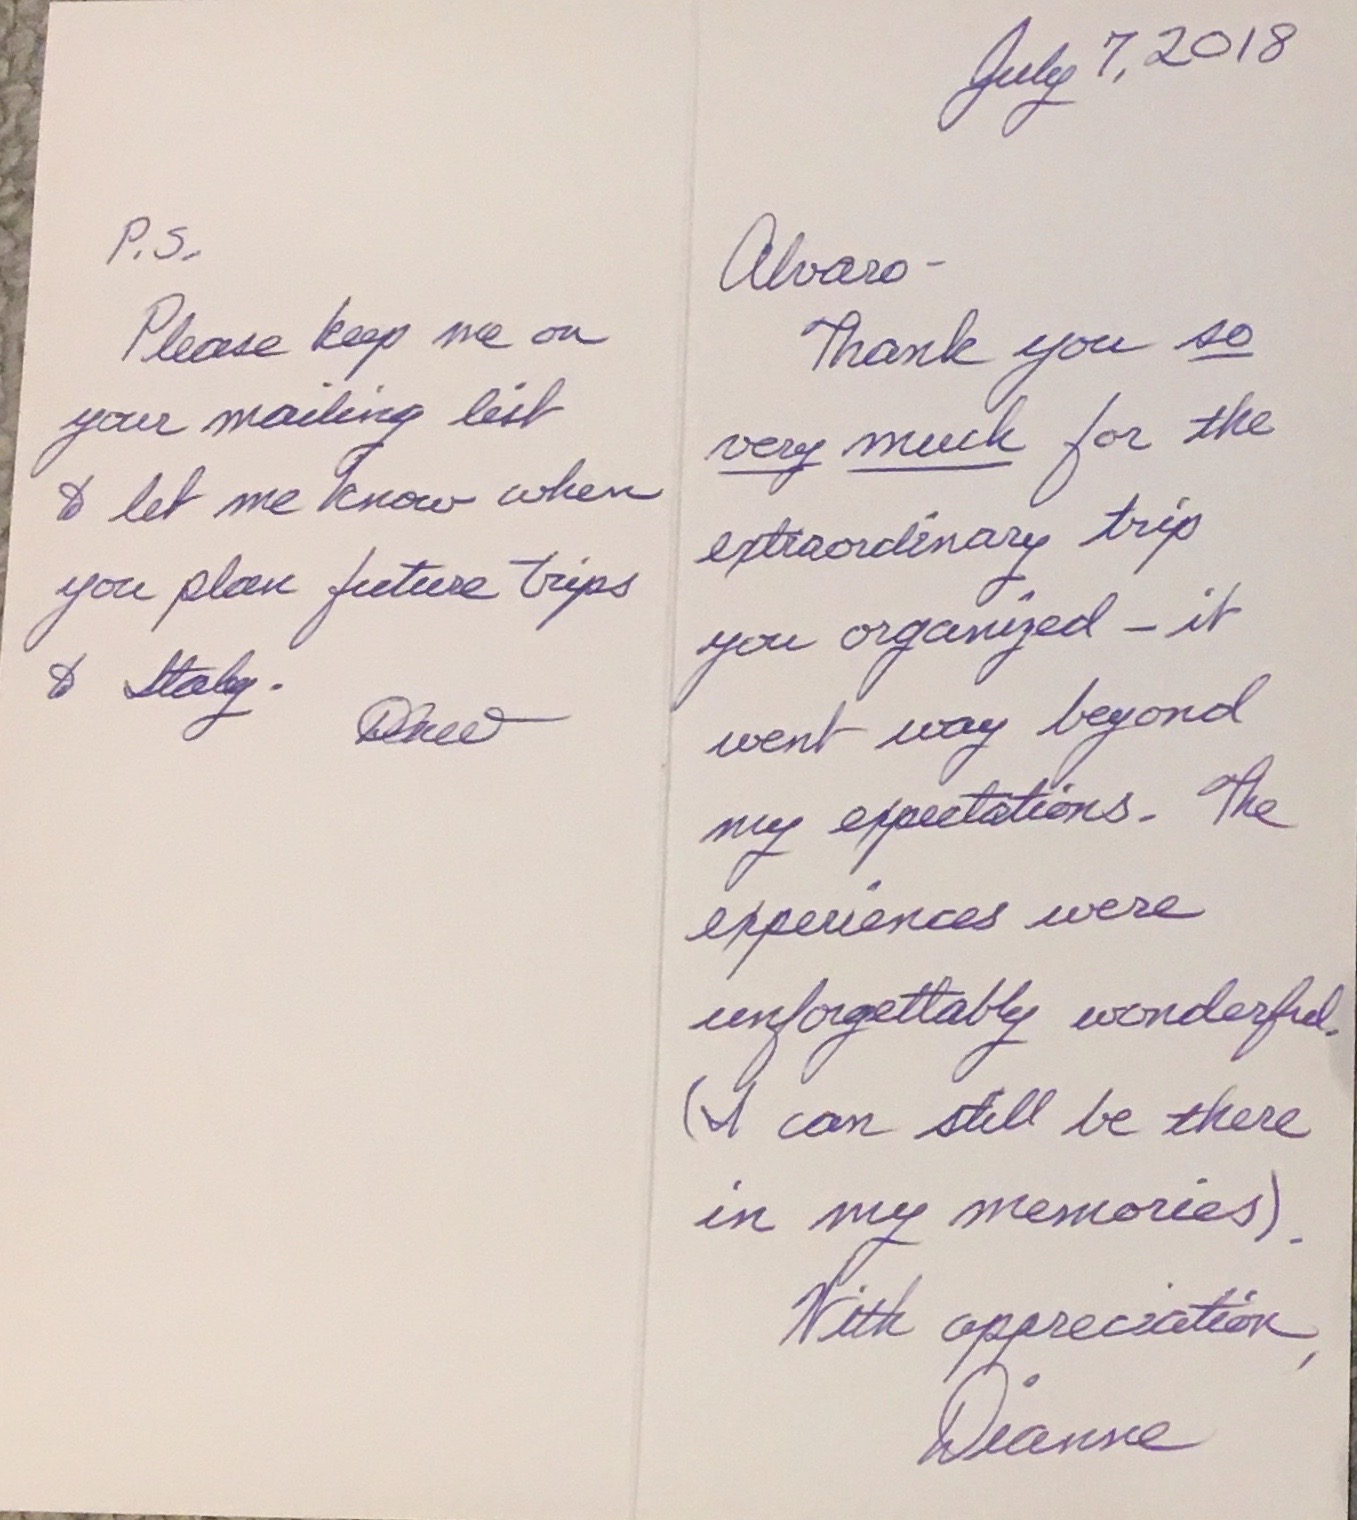 July 7, 2018
Alvaro-
Thank you so
very much for the
extraordinary trip
you organized - it
went way beyond
my expectations. The
experiences were
unforgettably wonderful.
(I can still be there
in my memories).
With appreciation,
Dianne
P.S.
Please keep me on
your mailing list
& let me know when
you plan future trips
& Italy.